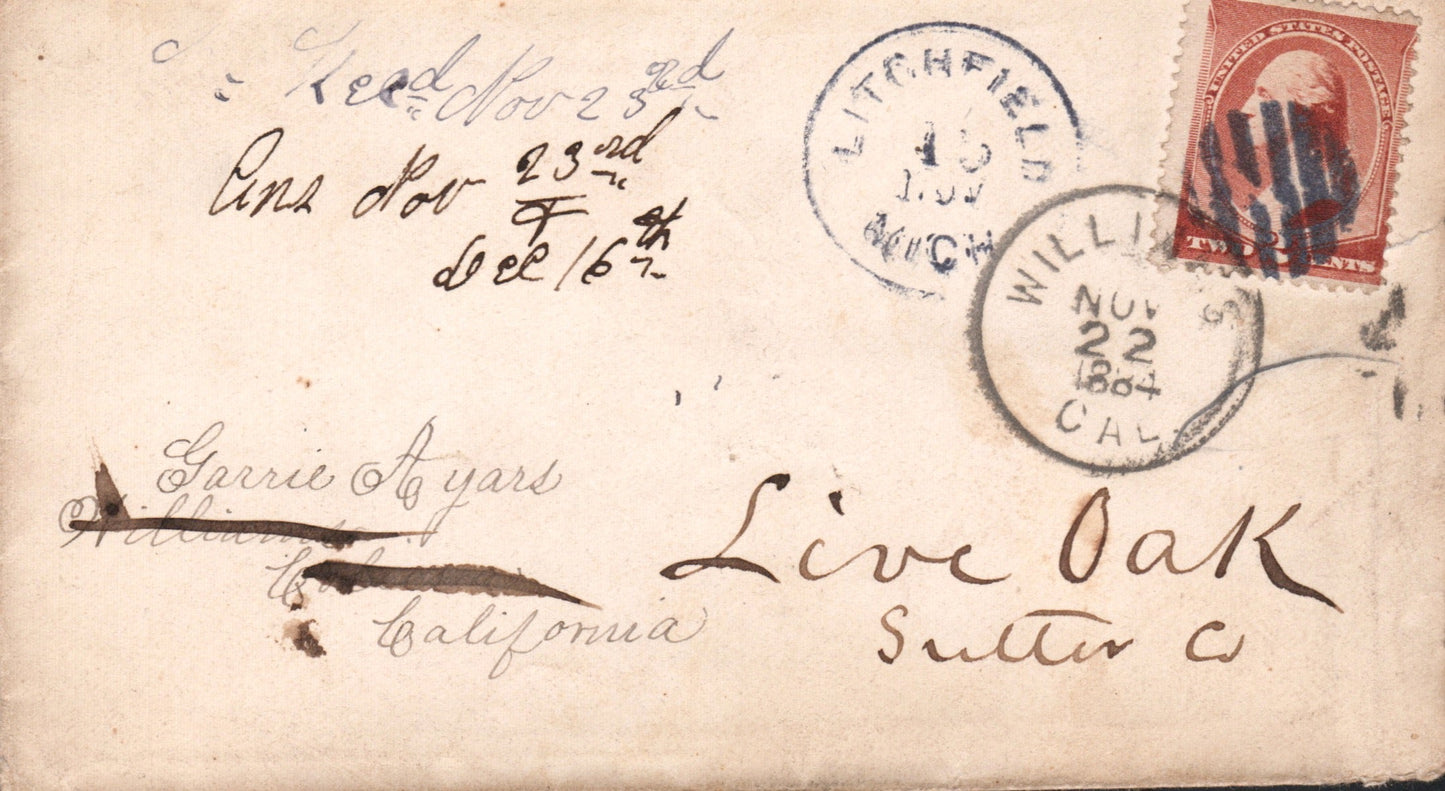 Recd Nov 23rd
Ans Nov 23rd
&
Dec 16th
LITCHFIELD
MICH
UNITED STATES POSTAGE
TWO 2 CENTS
WILLIAMS
NOV
22
1884
CAL.
Garrie Ayars
Williams
California
Live Oak
Sutter Co